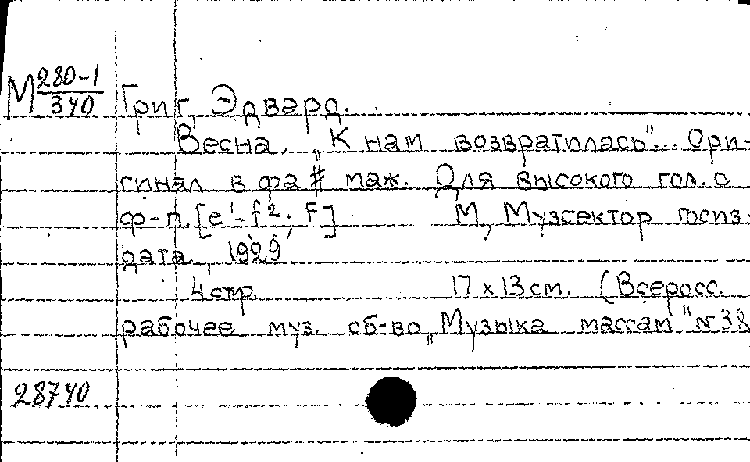 М 280-1/340
Григ, Эдвард.
Весна. „К нам возвратилась"... Ори-
гинал в фа # маж. Для высокого гол. с
ф-п. [e¹-f²; F] М., Музсектор госиз-
дата, 1929
4 стр. 17 x 13 см. (Всеросс.
рабочее муз. об-во „Музыка массам" № 38
28740